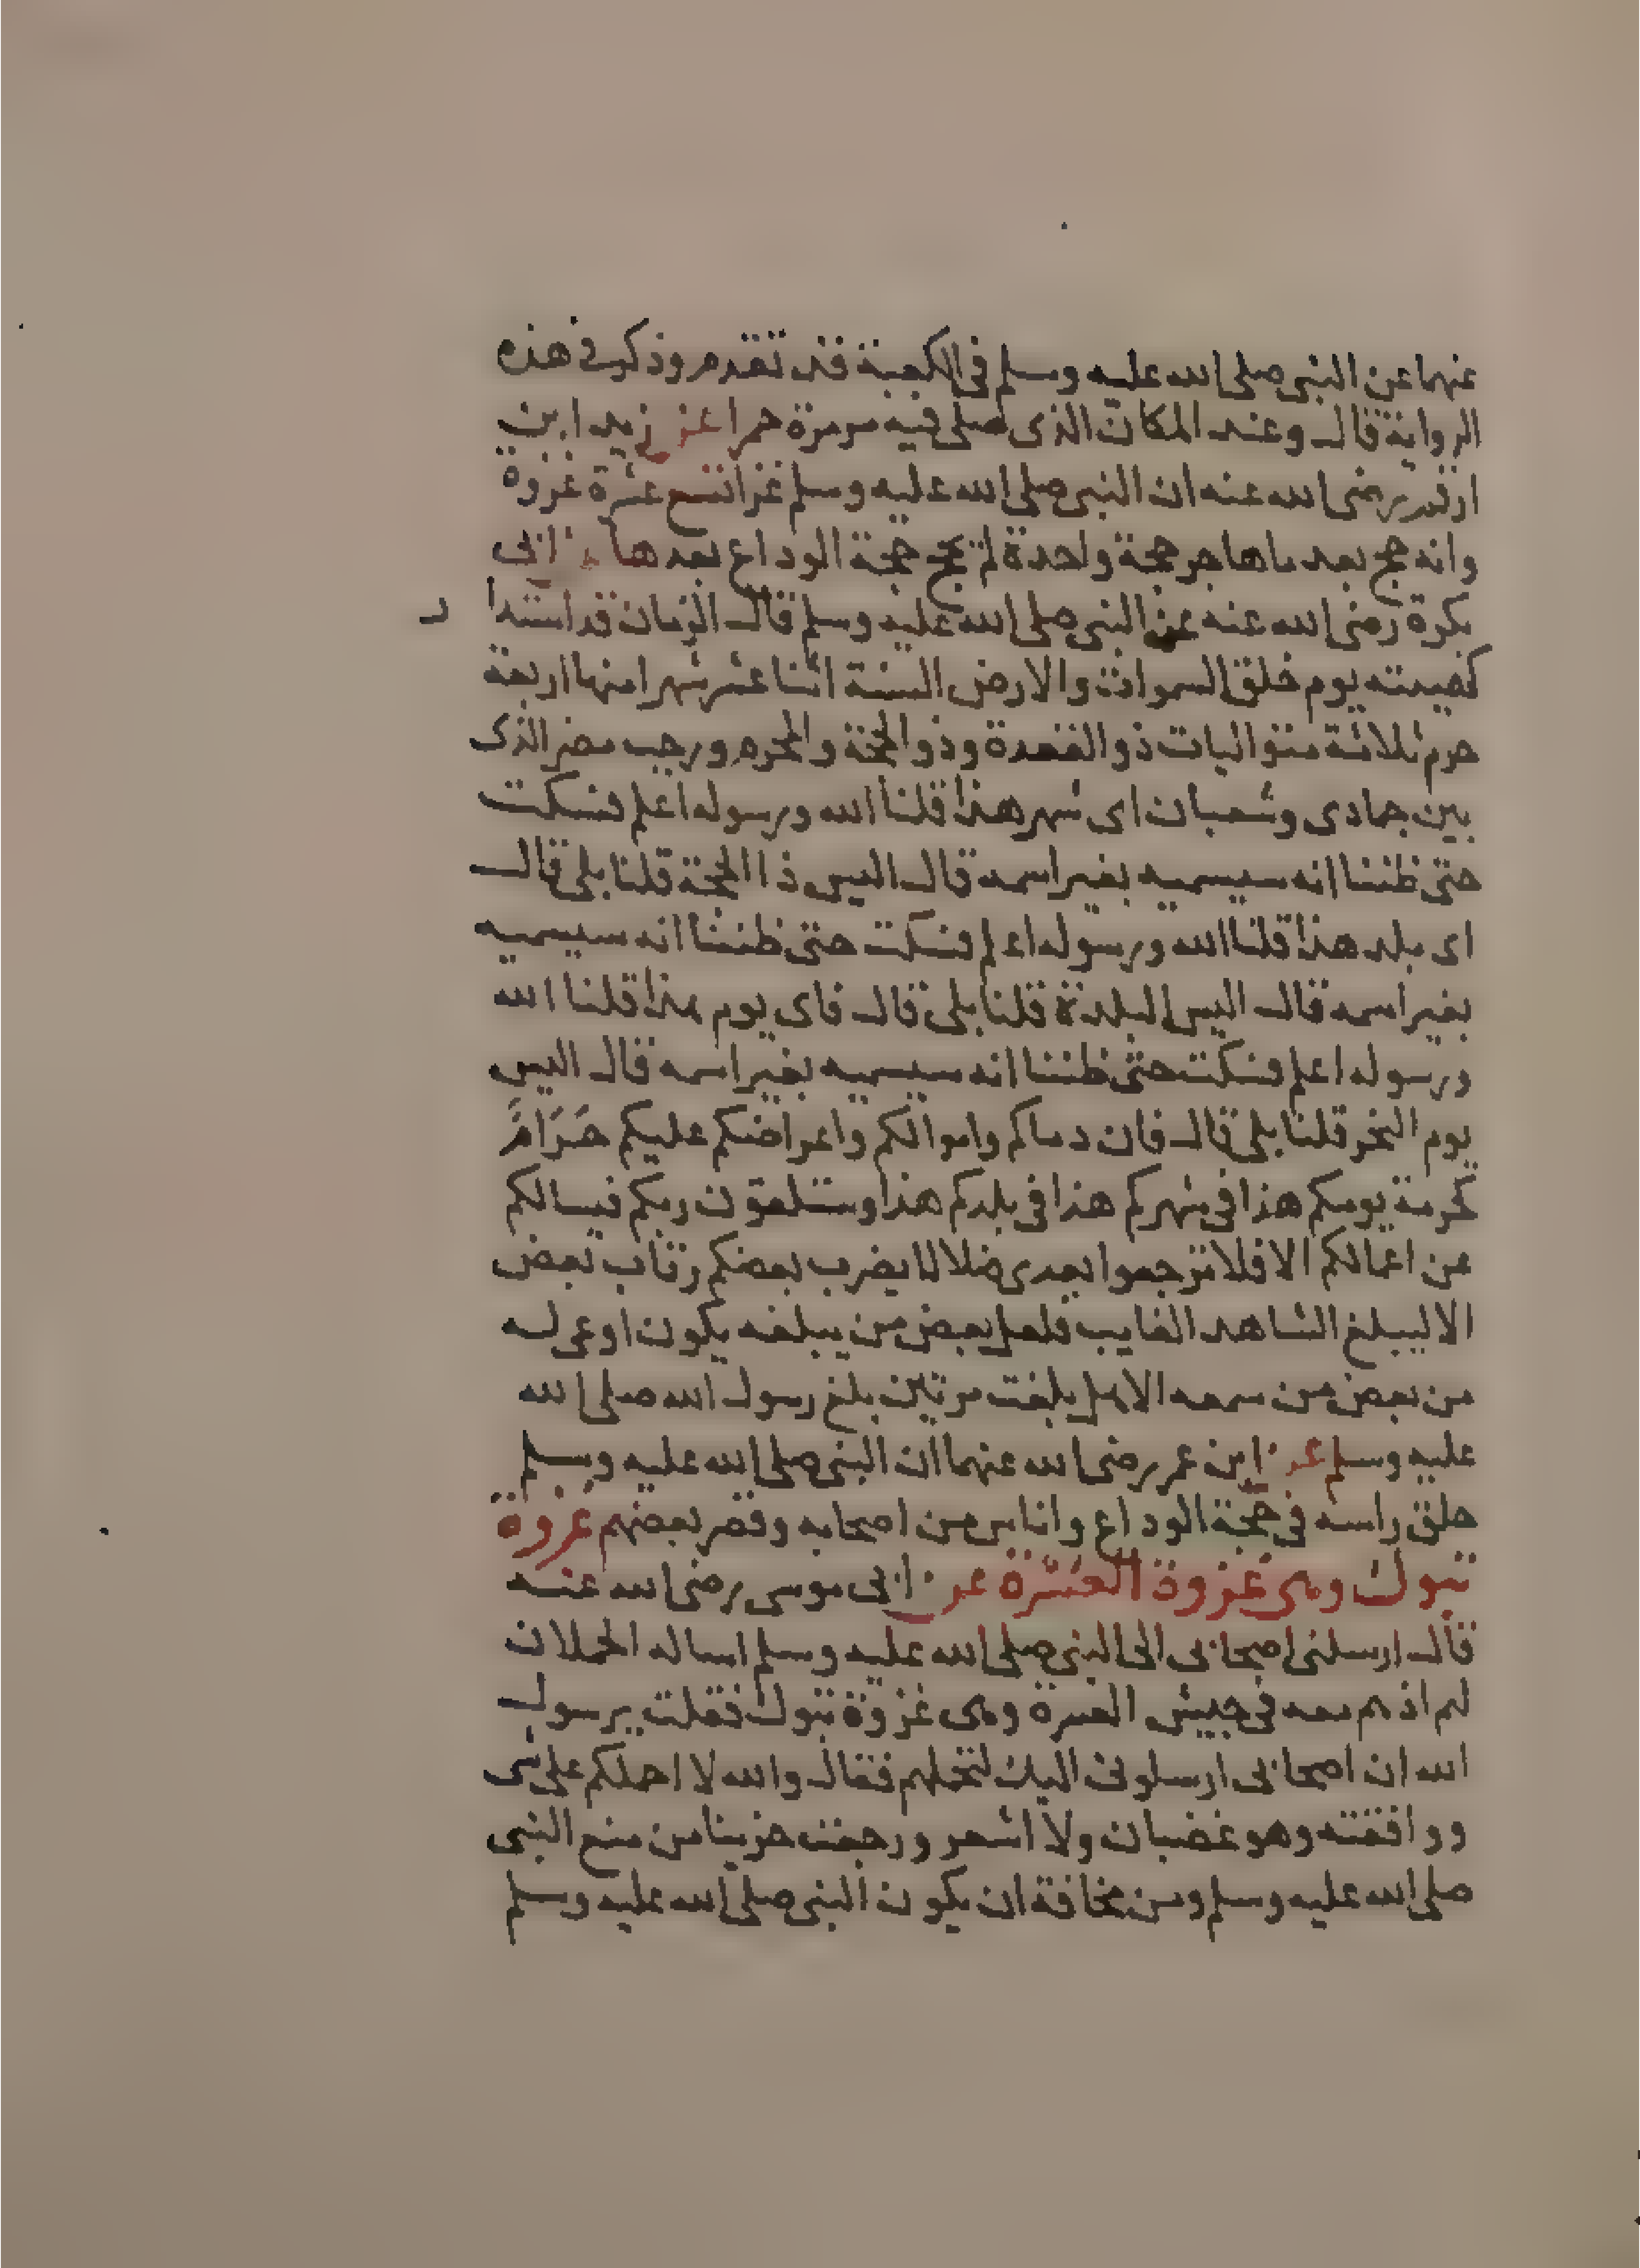 عنهما عن النبي صلى الله عليه وسلم في الكعبة قد تقدم وذكر في هذه
الرواية قال وعند المكان الذي صلى فيه مرمرة حمرا عن زيد ابن
ارقم رضى الله عنه ان النبي صلى الله عليه وسلم غزا تسع عشرة غزوة
وانه حج بعد ما هاجر حجة واحدة لم يحج حجة الوداع بعدها ابى
بكرة رضى الله عنه عن النبي صلى الله عليه وسلم قال الزمان قد استدا ر
كهيئته يوم خلق السموات والارض السنة اثنا عشر شهرا منها اربعة
حرم ثلاثة متواليات ذو القعدة وذو الحجة والمحرم ورجب مضر الذى
بين جمادى وشعبان اى شهر هذا قلنا الله ورسوله اعلم فسكت
حتى ظننا انه سيسميه بغير اسمه قال اليس ذا الحجة قلنا بلى قال
اى بلد هذا قلنا الله ورسوله اعلم فسكت حتى ظننا انه سيسميه
بغير اسمه قال اليس البلدة قلنا بلى قال فاى يوم هذا قلنا الله
ورسوله اعلم فسكت حتى ظننا انه سيسميه بغير اسمه قال اليس
يوم النحر قلنا بلى قال فان دماكم واموالكم واعراضكم عليكم حَرَامٌ
كحرمة يومكم هذا فى شهركم هذا فى بلدكم هذا وستلقون ربكم فيسالكم
عن اعمالكم الا فلا ترجعوا بعدى ضلالا يضرب بعضكم رقاب بعض
الا ليبلغ الشاهد الغايب فلعل بعض من يبلغه يكون اوعى له
من بعض من سمعه الا هل بلغت مرتين بلغ رسول الله صلى الله
عليه وسلم عن ابن عمر رضى الله عنهما ان النبي صلى الله عليه وسلم
حلق راسه فى حجة الوداع واناس من اصحابه وقصر بعضهم غزوة
تبوك وهى غزوة العسرة عن ابى موسى رضى الله عنه
قال ارسلنى اصحابى الى النبي صلى الله عليه وسلم اساله الحملان
لهم اذ هم معه فى جيش العسرة وهى غزوة تبوك فقلت يرسول
الله ان اصحابى ارسلونى اليك لتحملهم فقال والله لا احملكم على شى
ووافقته وهو غضبان ولا اشعر ورجعت حزينا من منع النبي
صلى الله عليه وسلم ومن مخافة ان يكون النبي صلى الله عليه وسلم